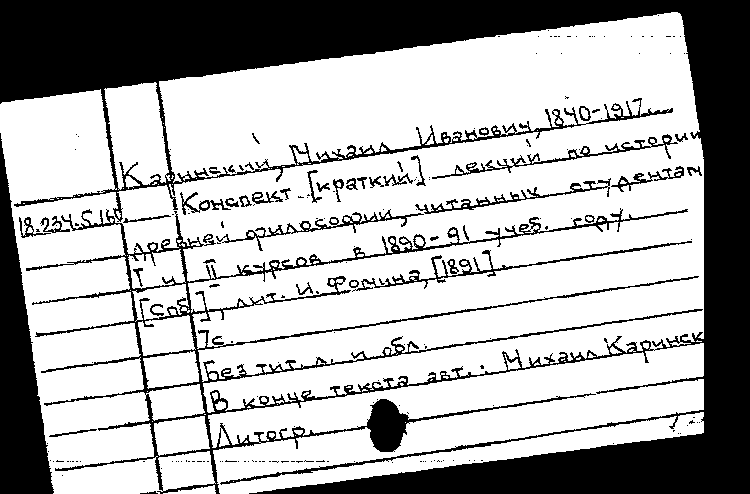 Каринский, Михаил Иванович, 1840-1917.
Конспект [краткий] лекций по истории
18.234.5.160.
древней философии, читанных студентам
I и II курсов в 1890-91 учеб. году.
[Спб.], лит. И. Фомина, [1891].
7с.
Без тит. л. и обл.
В конце текста авт.: Михаил Каринск
Литогр.